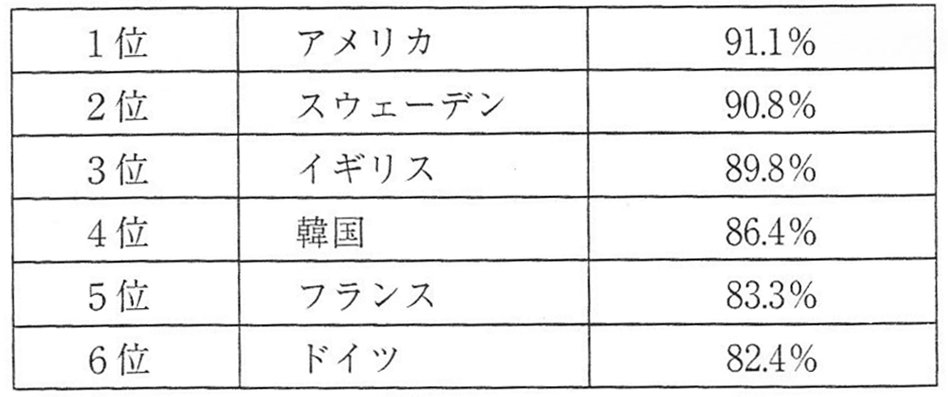 1位 アメリカ 91.1%
2位 スウェーデン 90.8%
3位 イギリス 89.8%
4位 韓国 86.4%
5位 フランス 83.3%
6位 ドイツ 82.4%